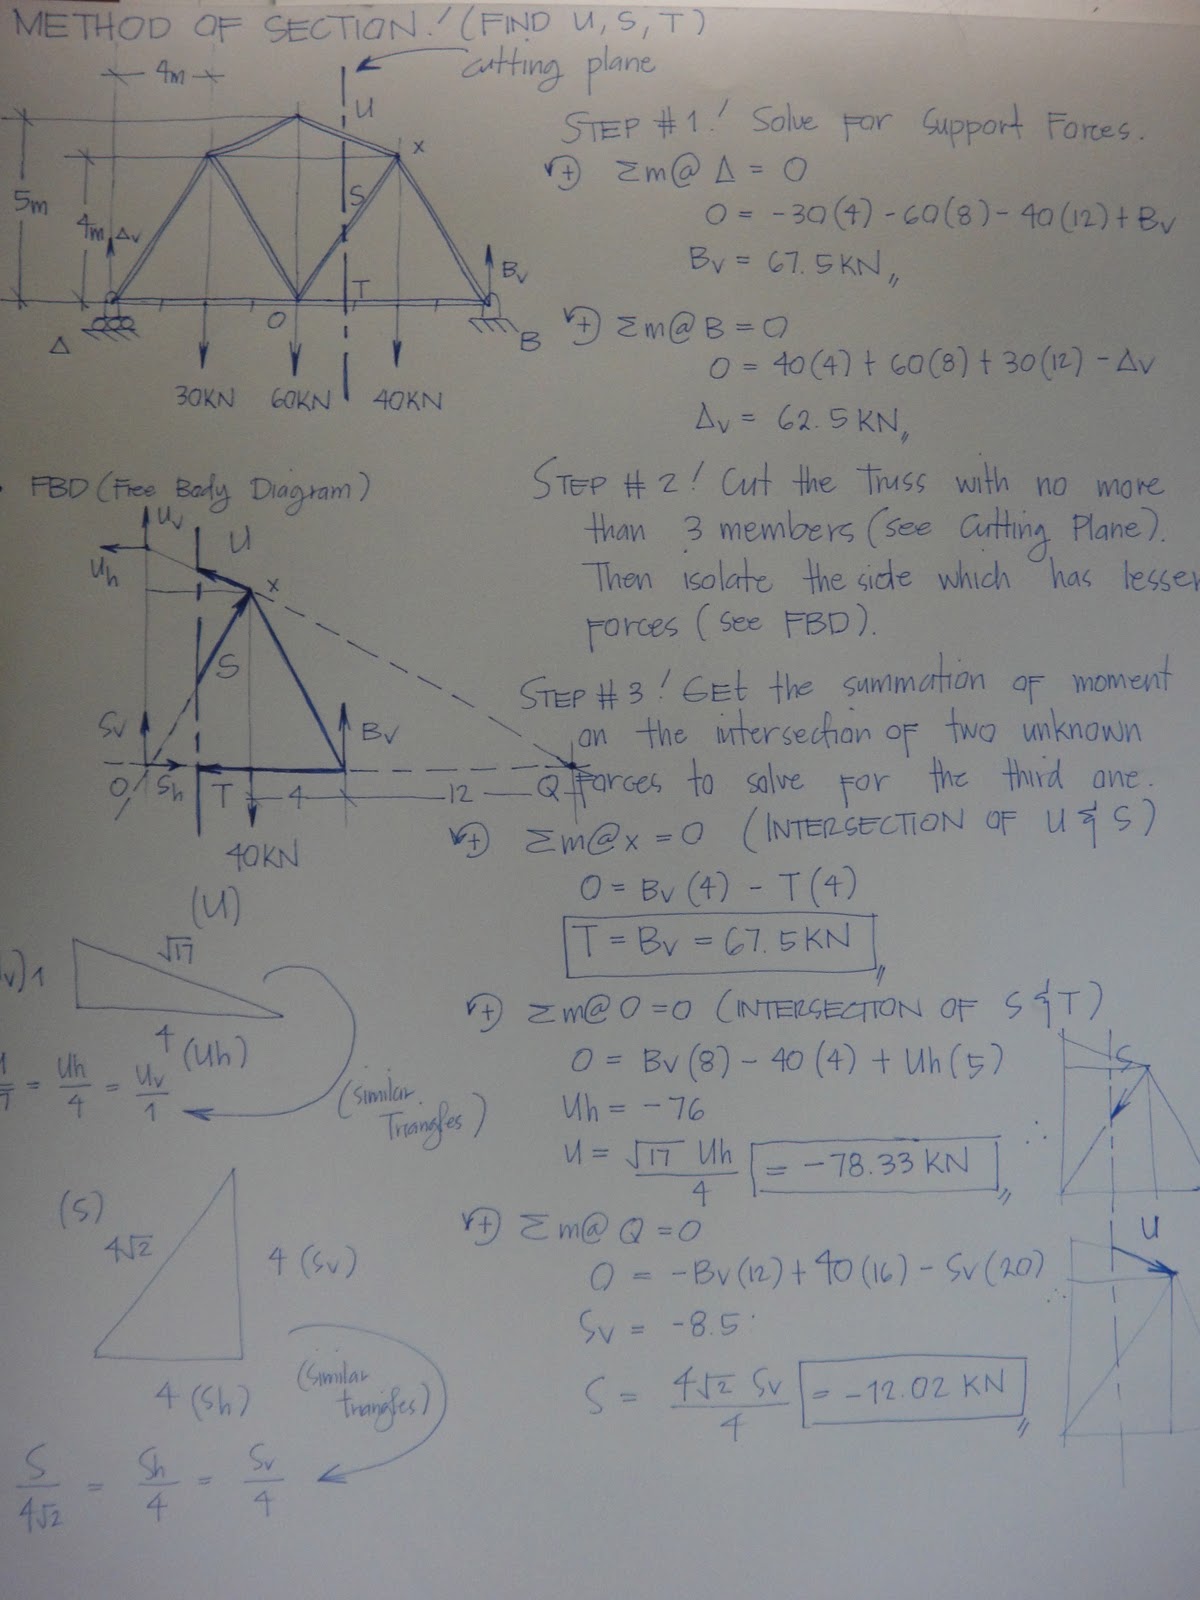 METHOD OF SECTION! (FIND U, S, T)
cutting plane
4m
U
X
5m
4m
Av
S
T
Bv
O
Δ
B
30KN 60KN 40KN
STEP #1! Solve for Support Forces.
+ Σm@ Δ = 0
0 = -30(4) - 60(8) - 40(12) + Bv
Bv = 67.5KN,,
+ Σm@ B = 0
0 = 40(4) + 60(8) + 30(12) - Δv
Δv = 62.5KN,,
FBD (Free Body Diagram)
Uv
U
Uh
X
S
Sv
Bv
O
Sh
T
4
12
Q
40KN
STEP #2! Cut the Truss with no more
than 3 members (see Cutting Plane).
Then isolate the side which has lesser
forces (see FBD).
STEP #3! GEt the summation of moment
on the intersection of two unknown
Forces to solve for the third one.
+ Σm@x = 0 (INTERSECTION OF U & S)
0 = Bv(4) - T(4)
T = Bv = 67.5KN,,
+ Σm@O = 0 (INTERSECTION OF S & T)
0 = Bv(8) - 40(4) + Uh(5)
Uh = -76
U = √17 Uh / 4 = -78.33 KN,,
+ Σm@ Q = 0
0 = -Bv(12) + 40(16) - Sv(20)
Sv = -8.5
S = 4√2 Sv / 4 = -12.02 KN,,
∴
S
∴
U
(U)
√17
v) 1
4 (Uh)
= Uh/4 = Uv/1
(similar
Triangles)
(S)
4√2
4 (Sv)
4 (Sh)
(similar
triangles)
S/4√2 = Sh/4 = Sv/4